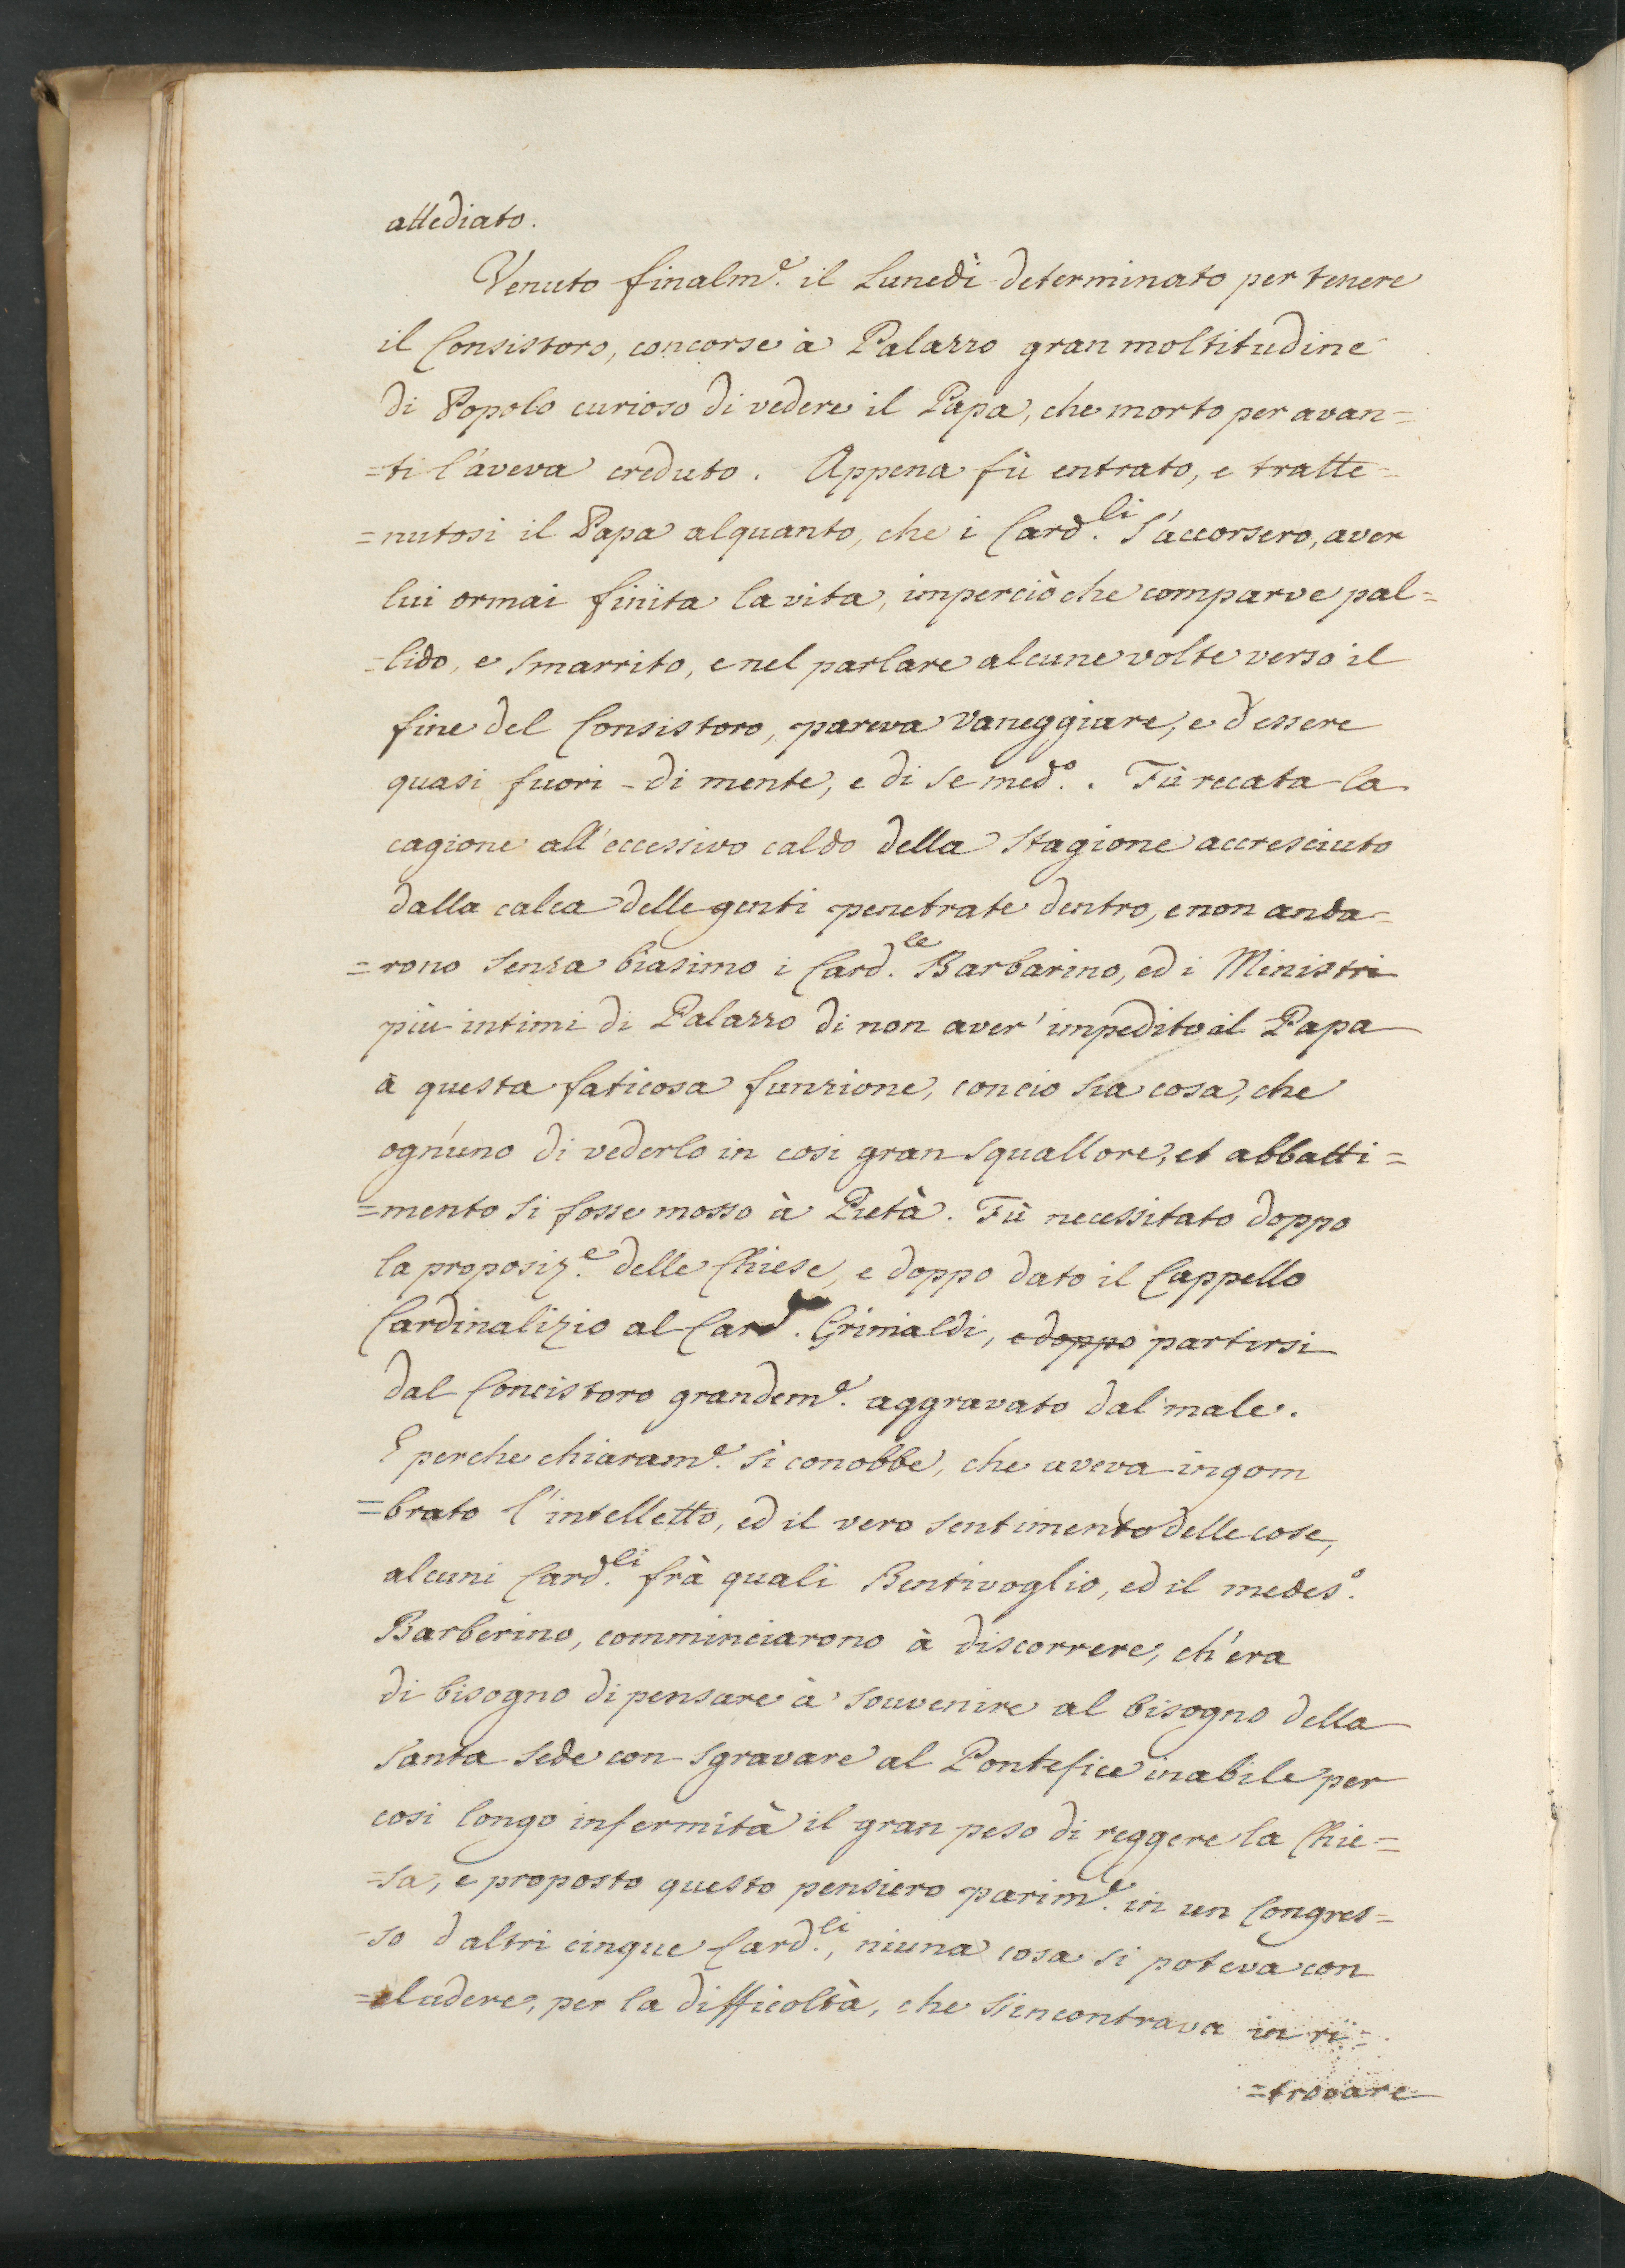 attediato.
Venuto finalm.e il Lunedì determinato per tenere
il Consistoro, concorse à Palazzo gran moltitudine
di Popolo curioso di vedere il Papa, che morto per avan=
=ti l'aveva creduto. Appena fù entrato, e tratte=
=nutosi il Papa alquanto, che i Card.li s'accorsero, aver
lui ormai finita la vita, imperciòche comparve pal=
=lido, e smarrito, e nel parlare alcune volte verso il
fine del Consistoro, pareva vaneggiare, e d'essere
quasi fuori di mente, e di se med.o. Fù recata la
cagione all'eccessivo caldo della stagione accresciuto
dalla calca delle genti penetrate dentro, e non anda=
=rono senza biasimo i Card.le Barbarino, ed i Ministri
più intimi di Palazzo di non aver' impedito il Papa
à questa faticosa funzione, concio sia cosa, che
ogn'uno di vederlo in cosi gran squallore, et abbatti=
=mento si fosse mosso à Pietà. Fù necessitato doppo
la proposiz.e delle Chiese, e doppo dato il Cappello
Cardinalizio al Card. Grimaldi, e doppo partirsi
dal Concistoro grandem.e aggravato dal male.
E perche chiaram.e si conobbe, che aveva ingom
=brato l'intelletto, ed il vero sentimento delle cose,
alcuni Card.li frà quali Bentivoglio, ed il medes.o
Barberino, comminciarono à discorrere, ch'era
di bisogno di pensare à souvenire al bisogno della
Santa Sede con sgravare al Pontefice inabile per
cosi longo infermità il gran peso di reggere la Chie=
=sa, e proposto questo pensiero parim.e in un Congres=
=so d'altri cinque Card.li, niuna cosa si poteva con
=cludere, per la difficoltà, che s'encontrava in ri=
=trovare